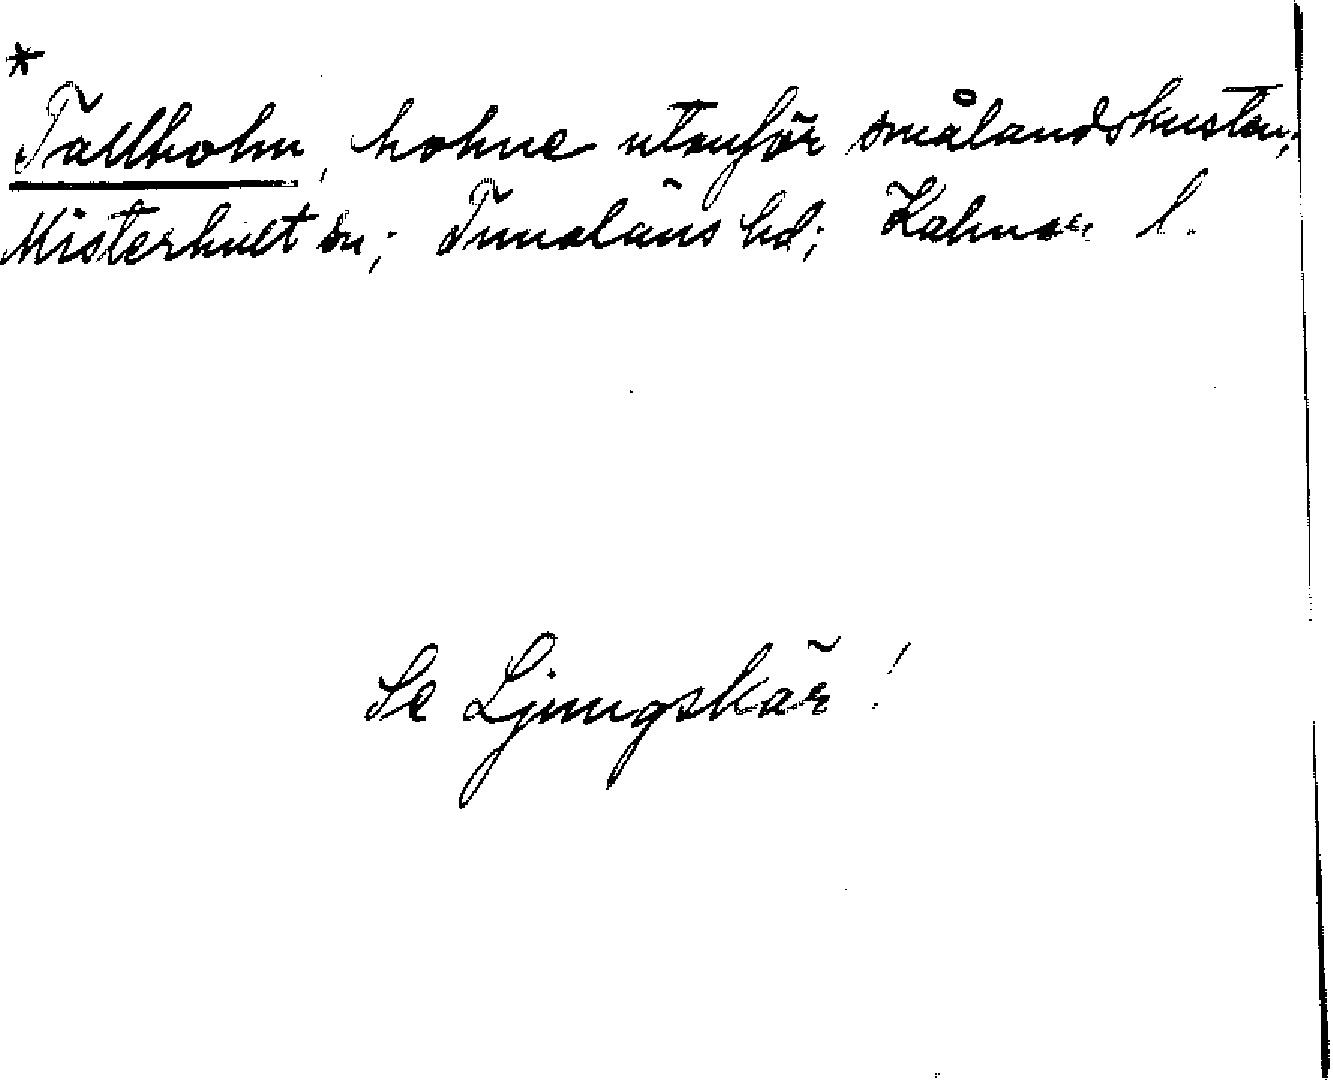 *
Tallholm, holme utanför smålandskusten;
Misterhult sn; Tunaläns hd; Kalmar l.
Se Ljungskär!